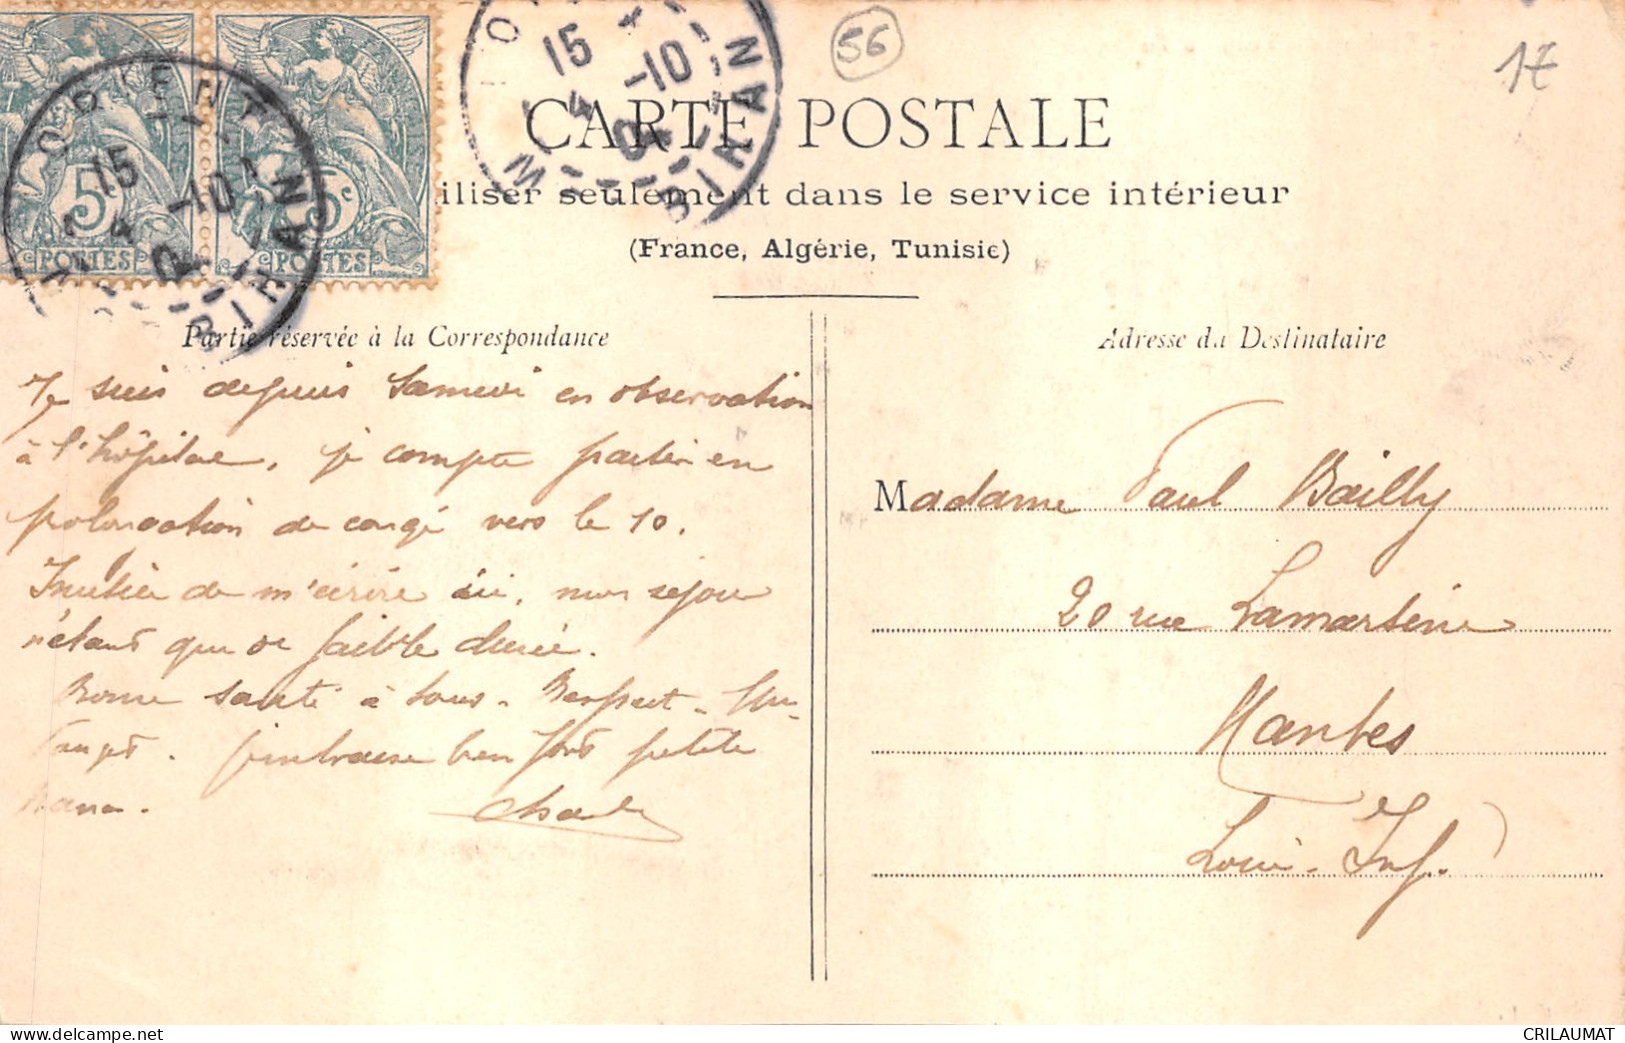 56
17
CARTE POSTALE
iliser seulement dans le service intérieur
(France, Algérie, Tunisie)
5c 5c
POSTES POSTES
LORIENT
MORBIHAN
15
4
-10
Partie réservée à la Correspondance
Je suis depuis Samedi en observation
à l'hôpital, je compte partir en
prolongation de congé vers le 10.
Inutile de m'écrire ici, mon séjour
n'étant que de faible durée.
Bonne santé à tous. Beau
temps. J'embrasse bien fort petite
Charles
Adresse du Destinataire
Madame Paul Bailly
20 rue Lamartine
Nantes
Loire-Inf.
www.delcampe.net
CRILAUMAT